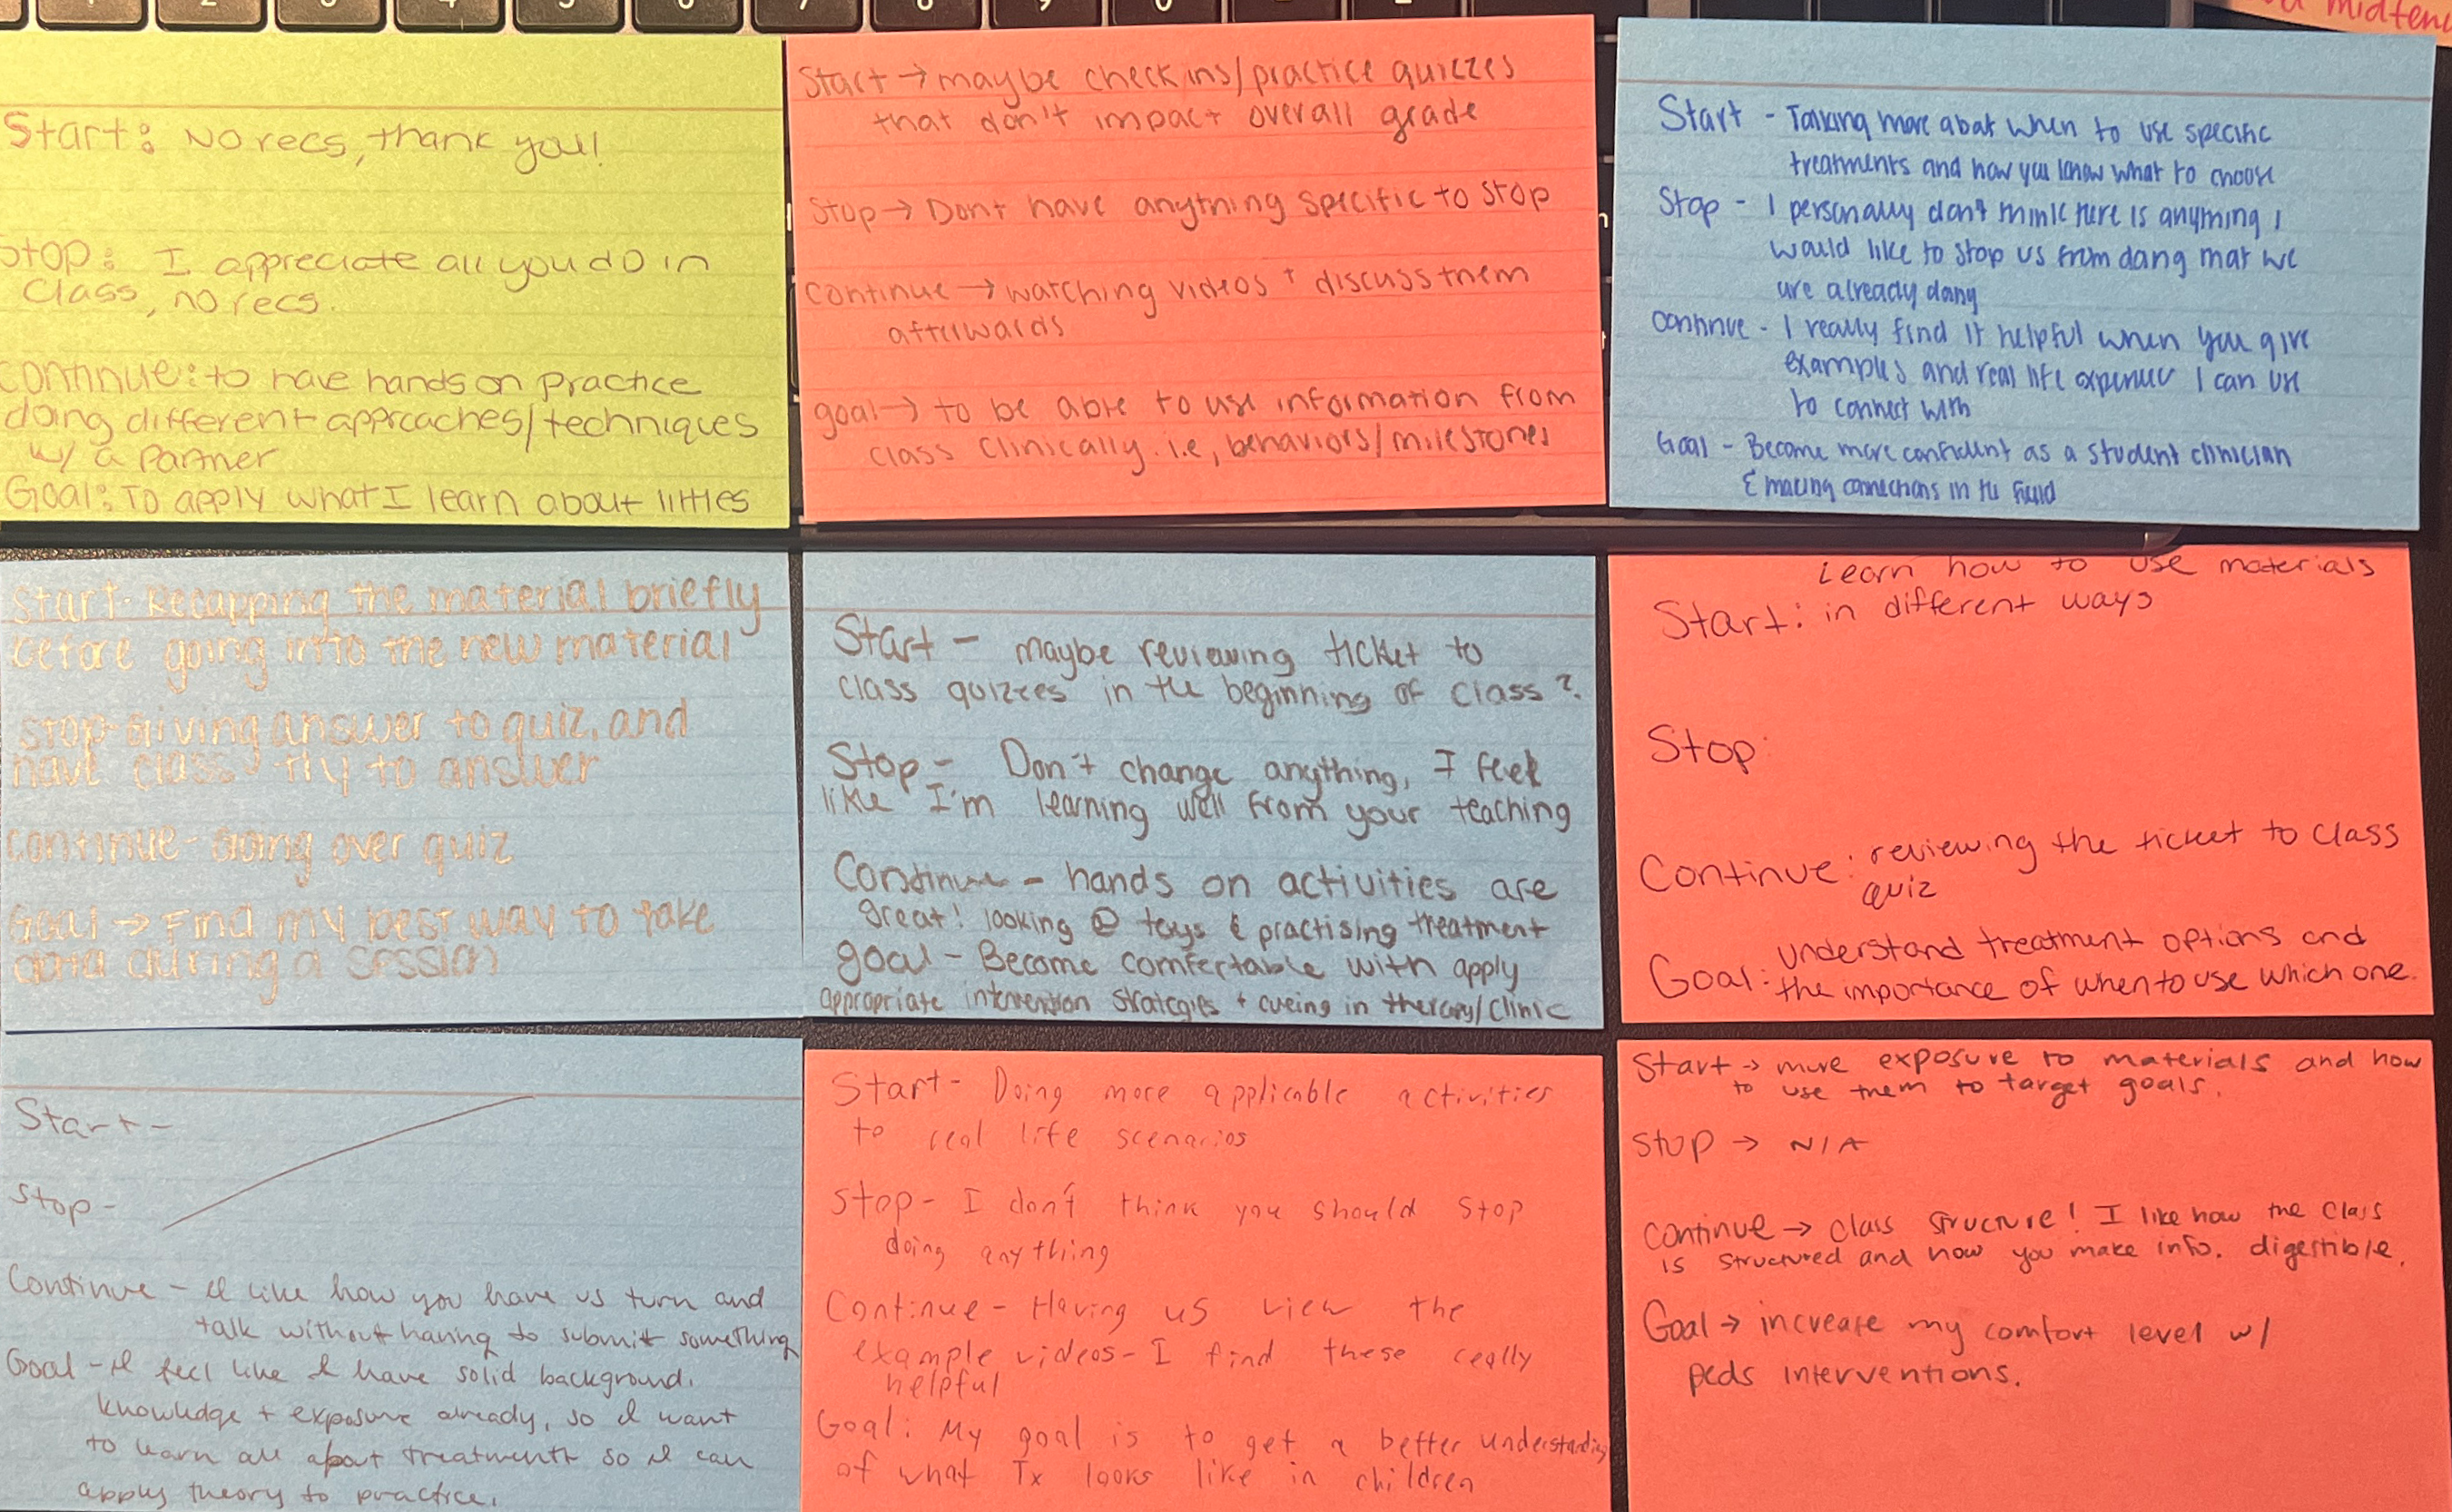 1 2 3 4 5 6 7 8 9 0
midterm
Start: No recs, thank you!
Stop: I appreciate all you do in
class, no recs.
Continue: to have hands on practice
doing different approaches/techniques
w/ a partner
Goal: To apply what I learn about littles
Start → maybe check ins/practice quizzes
that don't impact overall grade
Stop → Dont have anything specific to stop
Continue → watching videos + discuss them
afterwards
goal → to be able to use information from
class clinically. i.e, behaviors/milestones
Start - Talking more about when to use specific
treatments and how you know what to choose
Stop - I personally don't think there is anything I
would like to stop us from doing that we
are already doing
Continue - I really find it helpful when you give
examples and real life experience I can use
to connect with
Goal - Become more confident as a student clinician
& making connections in the field
Start - Recapping the material briefly
before going into the new material
Stop - Giving answer to quiz, and
have class try to answer
Continue - Going over quiz
Goal → Find my best way to take
data during a session
Start - maybe reviewing ticket to
class quizzes in the beginning of class?
Stop - Don't change anything, I feel
like I'm learning well from your teaching
Continue - hands on activities are
great! looking @ toys & practising treatment
goal - Become comfertable with apply
appropriate intervention strategies + cueing in therapy/clinic
Learn how to use materials
Start: in different ways
Stop:
Continue: reviewing the ticket to class
quiz
understand treatment options and
Goal: the importance of when to use which one.
Start -
Stop -
Continue - I like how you have us turn and
talk without having to submit something
Goal - I feel like I have solid background
knowledge + exposure already, so I want
to learn all about treatment so I can
apply theory to practice.
Start - Doing more applicable activities
to real life scenarios
Stop - I don't think you should stop
doing anything
Continue - Having us view the
example videos - I find these really
helpful
Goal: My goal is to get a better understanding
of what Tx looks like in children
Start → more exposure to materials and how
to use them to target goals.
Stop → N/A
Continue → class structure! I like how the class
is structured and how you make info. digestible.
Goal → increase my comfort level w/
peds interventions.